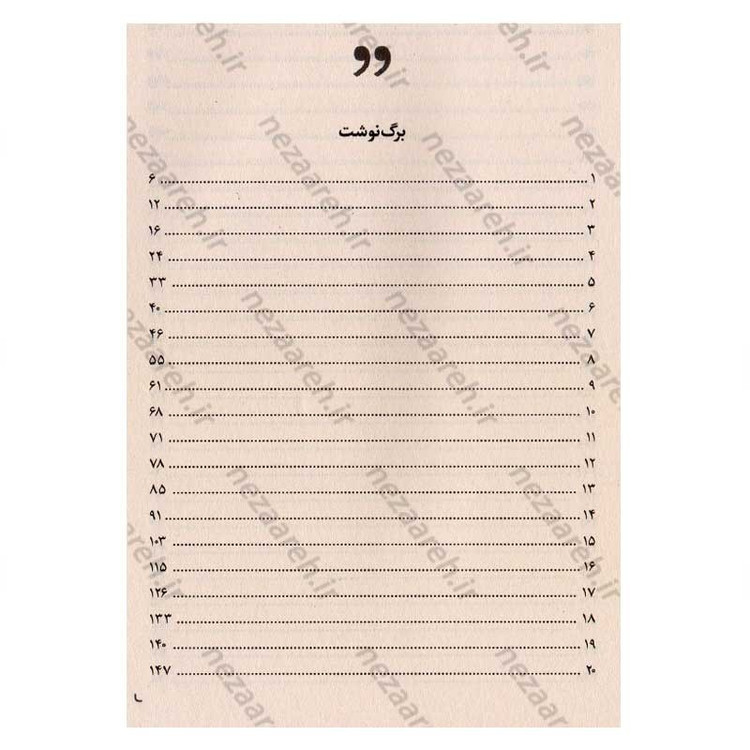 برگ‌نوشت
۱ ........ ۶
۲ ........ ۱۲
۳ ........ ۱۶
۴ ........ ۲۴
۵ ........ ۳۳
۶ ........ ۴۰
۷ ........ ۴۶
۸ ........ ۵۵
۹ ........ ۶۱
۱۰ ........ ۶۸
۱۱ ........ ۷۱
۱۲ ........ ۷۸
۱۳ ........ ۸۵
۱۴ ........ ۹۱
۱۵ ........ ۱۰۳
۱۶ ........ ۱۱۵
۱۷ ........ ۱۲۶
۱۸ ........ ۱۳۳
۱۹ ........ ۱۴۰
۲۰ ........ ۱۴۷
nezaareh.ir